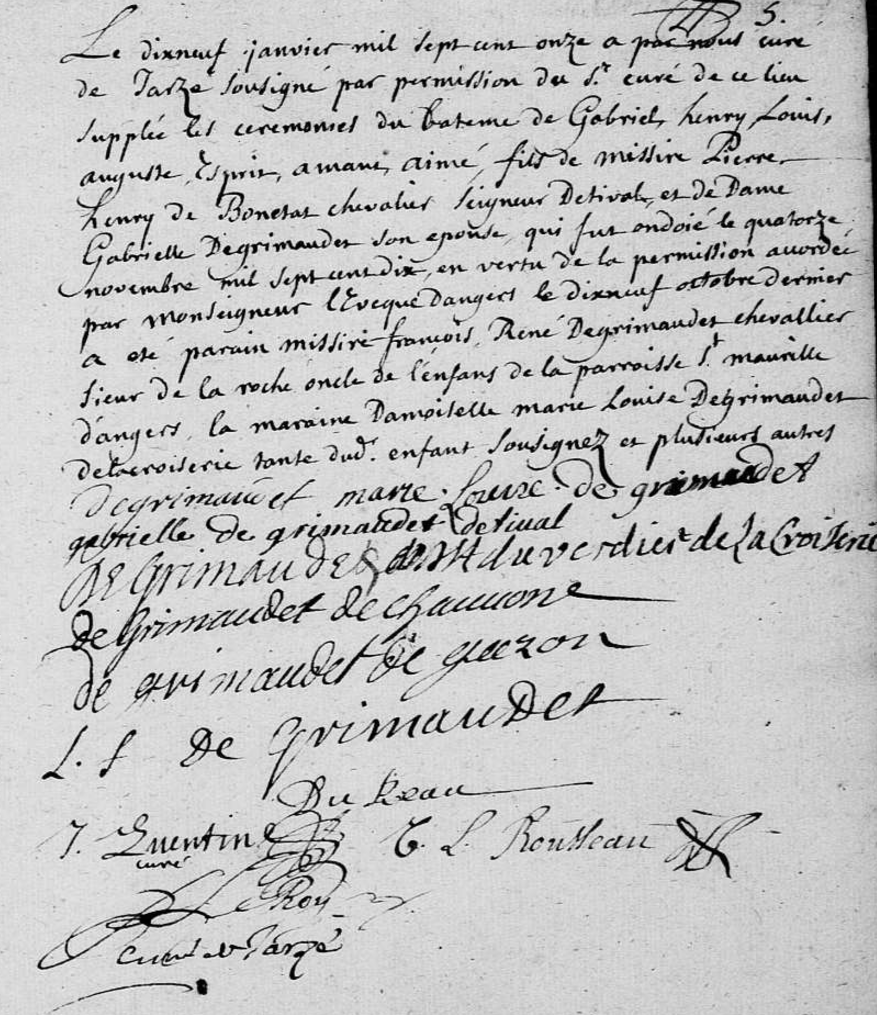 5.
Le dixneuf janvier mil sept cent onze a par nous curé
de Jarzé sousigné par permission du Sr. curé de ce lieu
supplée les ceremonies du bateme de Gabriel, henry, Louis,
auguste, Esprit, amant, aimé, fils de missire Pierre
henry de Bonetat chevalier seigneur Detival, et de Dame
Gabrielle Degrimaudet son epouse, qui fut ondoié le quatorze
novembre mil sept cent dix, en vertu de la permission accordée
par monseigneur l'Eveque dangers le dixneuf octobre dernier
a eté parain missire francois, René Degrimaudet chevallier
sieur de la roche oncle de l'énfans de la parroisse St. maurille
d'angers, la maraine Damoiselle marie Louise Degrimaudet
delacroiserie tante dudt. enfant sousignez et plusieurs autres
Degrimaudet marie louise de grimaudet
gabrielle de grimaudet detival
De Grimaudet du verdier de La Croiserie
de Grimaudet de chauuone
de grimaudet de guezon
L. f de grimaudet
Du Reau
J. Quentin T. L. Rousseau
curé
Le Roy
curé de Jarzé